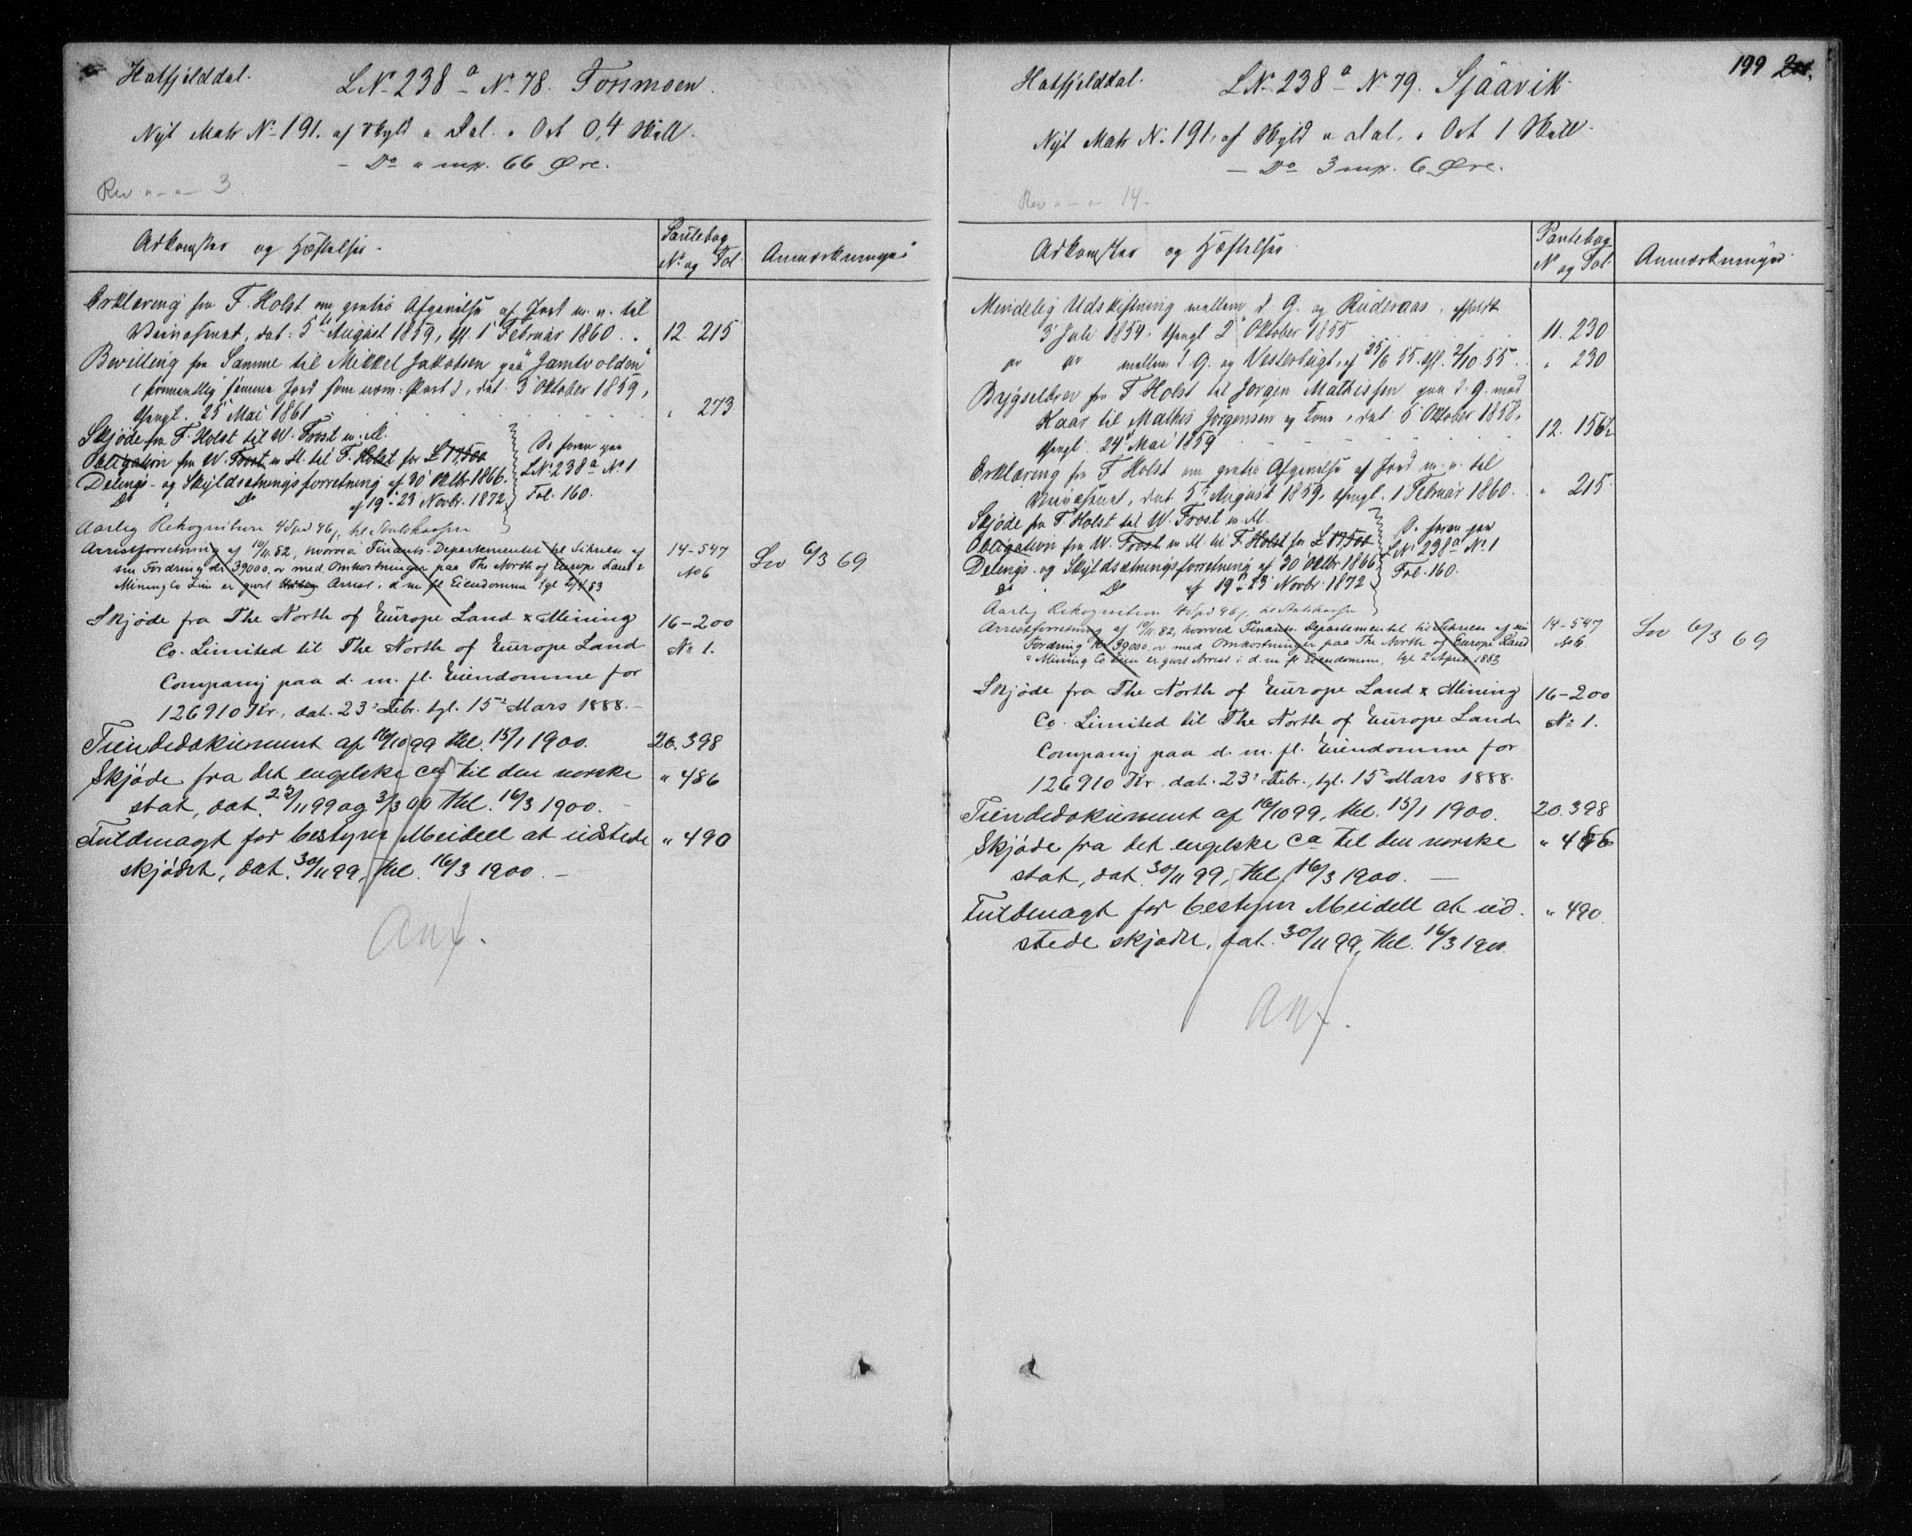 Hatfjelddal. LNo 238 a No 78. Forsmoen.
Nyt Matr No 191. af Skyld " Dal. " Ort 0,4 Skill.
— Do " mrk. 66 Øre.
Rev " - " - 3.
Adkomster og Hæftelser.
Pantebog
No og Fol.
Anmærkninger
Erklæring fra F. Holst om gratis Afgivelse af Jord m. v. til
dat: 5te August 1859, tgl. 1 Februar 1860. . 12 215
Bevilling fra Samme til Mikkel Jakobsen paa "Jamtvolden"
(formentlig samme Jord som nom: Post), dat. 3 Oktober 1859,
thingl. 25 Mai 1861 " 273
Skjøde fra F. Holst til W. Frost m. Fl.
Obligation fra W. Frost m. Fl. til F. Holst for £ 17,500
Delings- og Skyldsætningsforretning af 30 Oktbr 1866.
Do Do af 19-23 Novbr. 1872
Se foran paa
LNo 238 a No 1
Fol. 160.
Aarlig Rekognition 4 Spd 96 s,
Arrestforretning af 10/11 82, hvorved Finants-Departementet til Sikrelse af 14-547
sin Fordring Kr 39000. o: med Omkostninger paa The North of Europe Land & No 6
Mining Co Lim er gjort Arrest i d. m. fl. Eiendomme tgl 2/4 83
Lov 6/3 69
Skjøde fra The North of Europe Land & Mining 16-200
Co. Limited til The North of Europe Land No 1.
Company paa d. m. fl. Eiendomme for
126910 Kr., dat. 23 Febr. tgl. 15 Mars 1888. -
Tiendedokument af 16/10 99 thl. 15/1 1900. 20. 398
Skjøde fra det engelske Ca til den norske " 486
stat, dat. 23/11 99 og 3/3 00 thl. 16/3 1900. -
Fuldmagt for bestyrer Meidell at udstede " 490
skjødet, dat. 30/11 99, thl. 16/3 1900. -
Anf.
199
Hatfjelddal. LNo 238 a No 79. Sjåavik.
Nyt Matr No 191, af Skyld " Dal. " Ort 1 Skill.
— Do 3 mrk. 6 Øre.
Rev " - " - 14.
Adkomster og Hæftelser
Pantebog
No og Fol.
Anmærkninger.
Mindelig Udskiftning mellem d. G. og Ruderaas, afholdt
3 Juli 1854, thingl 2 Oktober 1855 11. 230
mellem d. G. og Vesterbugt, af 25/6 55. tgl. 2/10. 55 " 230
Bygselbrev fra F. Holst til Jørgen Mathissen paa d. G. med
Kaar til Mathis Jørgensen og Kone, dat. 6 Oktober 1858,
thingl. 24 Mai 1859 12. 156b
Erklæring fra F. Holst om gratis Afgivelse af Jord m. v. til
dat 5 August 1859, thingl. 1 Februar 1860. " 215
Skjøde fra F. Holst til W. Frost m. Fl.
Obligation fra W. Frost m. Fl til F. Holst for £ 17,500
Delings- og Skyldsætningsforretning af 30 Oktbr 1866
Do Do af 19-23 Novbr. 1872
Se foran paa
LNo 238 a No 1
Fol. 160.
Aarlig Rekognition 4 Spd 96 s,
Arrestforretning af 10/11 82, hvorved Finants-Departementet til Sikrelse af sin 14-547
Fordring Kr 39000. o: med Omkostninger paa The North of Europe Land No 6
& Mining Co Lim er gjort Arrest i d. m. fl. Eiendomme, tgl 2 April 1883
Lov 6/3 69
Skjøde fra The North of Europe Land & Mining 16-200
Co. Limited til The North of Europe Land No 1.
Company paa d. m. fl. Eiendomme for
126910 Kr, dat. 23 Febr., tgl. 15 Mars 1888.
Tiendedokument af 16/10 99, thl. 15/1 1900. 20. 398
Skjøde fra det engelske Ca til den norske " 486
stat, dat. 30/11 99, thl. 16/3 1900. -
Fuldmagt for bestyrer Meidell at ud- " 490
stede skjøde, dat. 30/11 99, thl. 16/3 1900.
Anf.